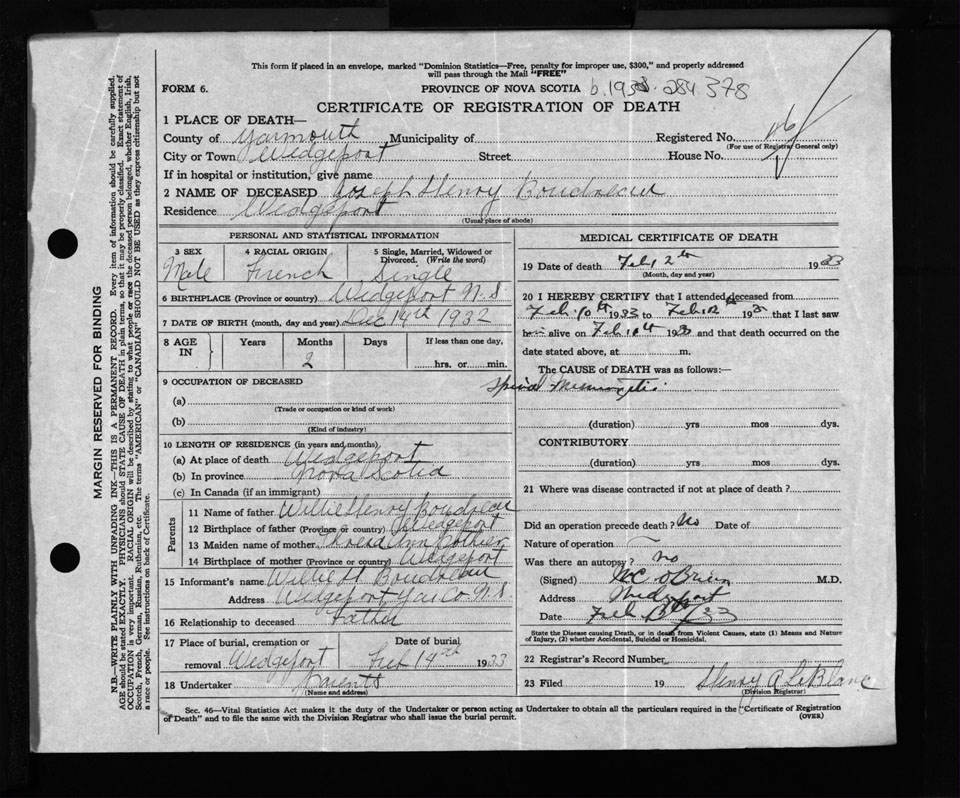 This form if placed in an envelope, marked "Dominion Statistics—Free, penalty for improper use, $300," and properly addressed
will pass through the Mail "FREE"
FORM 6.
PROVINCE OF NOVA SCOTIA
284 378
CERTIFICATE OF REGISTRATION OF DEATH
1 PLACE OF DEATH—
County of Yarmouth Municipality of
Registered No.
(For use of Registrar General only)
City or Town Wedgeport Street House No.
If in hospital or institution, give name
2 NAME OF DECEASED Joseph Henry Boudreau
Residence Wedgeport
(Usual place of abode)
PERSONAL AND STATISTICAL INFORMATION
3 SEX 4 RACIAL ORIGIN 5 Single, Married, Widowed or
Divorced. (Write the word)
Male French Single
6 BIRTHPLACE (Province or country) Wedgeport N.S.
7 DATE OF BIRTH (month, day and year) Dec 14th 1932
8 AGE IN Years Months Days If less than one day,
2
hrs. or min.
9 OCCUPATION OF DECEASED
(a)
(Trade or occupation or kind of work)
(b)
(Kind of industry)
10 LENGTH OF RESIDENCE (in years and months)
(a) At place of death Wedgeport
(b) In province Nova Scotia
(c) In Canada (if an immigrant)
Parents
11 Name of father Willie Henry Boudreau
12 Birthplace of father (Province or country) Wedgeport
13 Maiden name of mother Ann Pothier
14 Birthplace of mother (Province or country) Wedgeport
15 Informant's name Willie H. Boudreau
Address Wedgeport Yar Co. N.S
16 Relationship to deceased Father
17 Place of burial, cremation or Date of burial
removal Wedgeport Feb 14th 1933
18 Undertaker Parents
(Name and address)
MEDICAL CERTIFICATE OF DEATH
19 Date of death Feb 12th 1933
(Month, day and year)
20 I HEREBY CERTIFY that I attended deceased from
Feb. 10th 1933 to Feb. 12th 193 that I last saw
him alive on Feb. 10th 193 and that death occurred on the
date stated above, at m.
The CAUSE of DEATH was as follows:—
Spinal Meningitis
(duration) yrs mos dys.
CONTRIBUTORY
(duration) yrs mos dys.
21 Where was disease contracted if not at place of death?
Did an operation precede death? No Date of
Nature of operation
Was there an autopsy? no
(Signed) O'Brien M.D.
Address Wedgeport
Date Feb 33
State the Disease causing Death, or in death from Violent Causes, state (1) Means and Nature
of Injury, (2) whether Accidental, Suicidal or Homicidal.
22 Registrar's Record Number
23 Filed 19 Henry A LeBlanc
(Division Registrar)
Sec. 46—Vital Statistics Act makes it the duty of the Undertaker or person acting as Undertaker to obtain all the particulars required in the "Certificate of Registration
of Death" and to file the same with the Division Registrar who shall issue the burial permit.
(OVER)
MARGIN RESERVED FOR BINDING
N.B.—WRITE PLAINLY WITH UNFADING INK—THIS IS A PERMANENT RECORD. Every item of information should be carefully supplied.
AGE should be stated EXACTLY. PHYSICIANS should STATE CAUSE OF DEATH in plain terms, so that it may be properly classified. Exact statement of
OCCUPATION is very important. RACIAL ORIGIN will be described by stating to what people or race the deceased person belonged, whether English, Irish,
Scotch, French, German, Russian, Ruthenian, etc. The terms "AMERICAN" or "CANADIAN" SHOULD NOT BE USED as they express citizenship but not
a race or people. See instructions on back of Certificate.